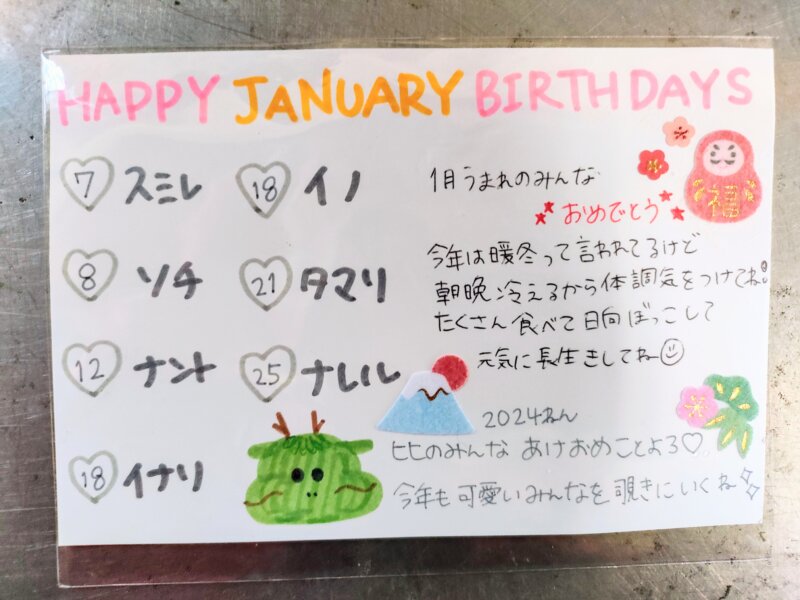 HAPPY JANUARY BIRTHDAYS
7 スミレ
8 ソチ
12 ナント
18 イナリ
18 イノ
21 タマリ
25 ナレル
1月うまれのみんな
おめでとう
福
今年は暖冬って言われてるけど
朝晩冷えるから体調気をつけてね
たくさん食べて日向ぼっこして
元気に長生きしてねー
2024ねん
ヒヒのみんな あけおめことよろ♡
今年も可愛いみんなを覗きにいくね